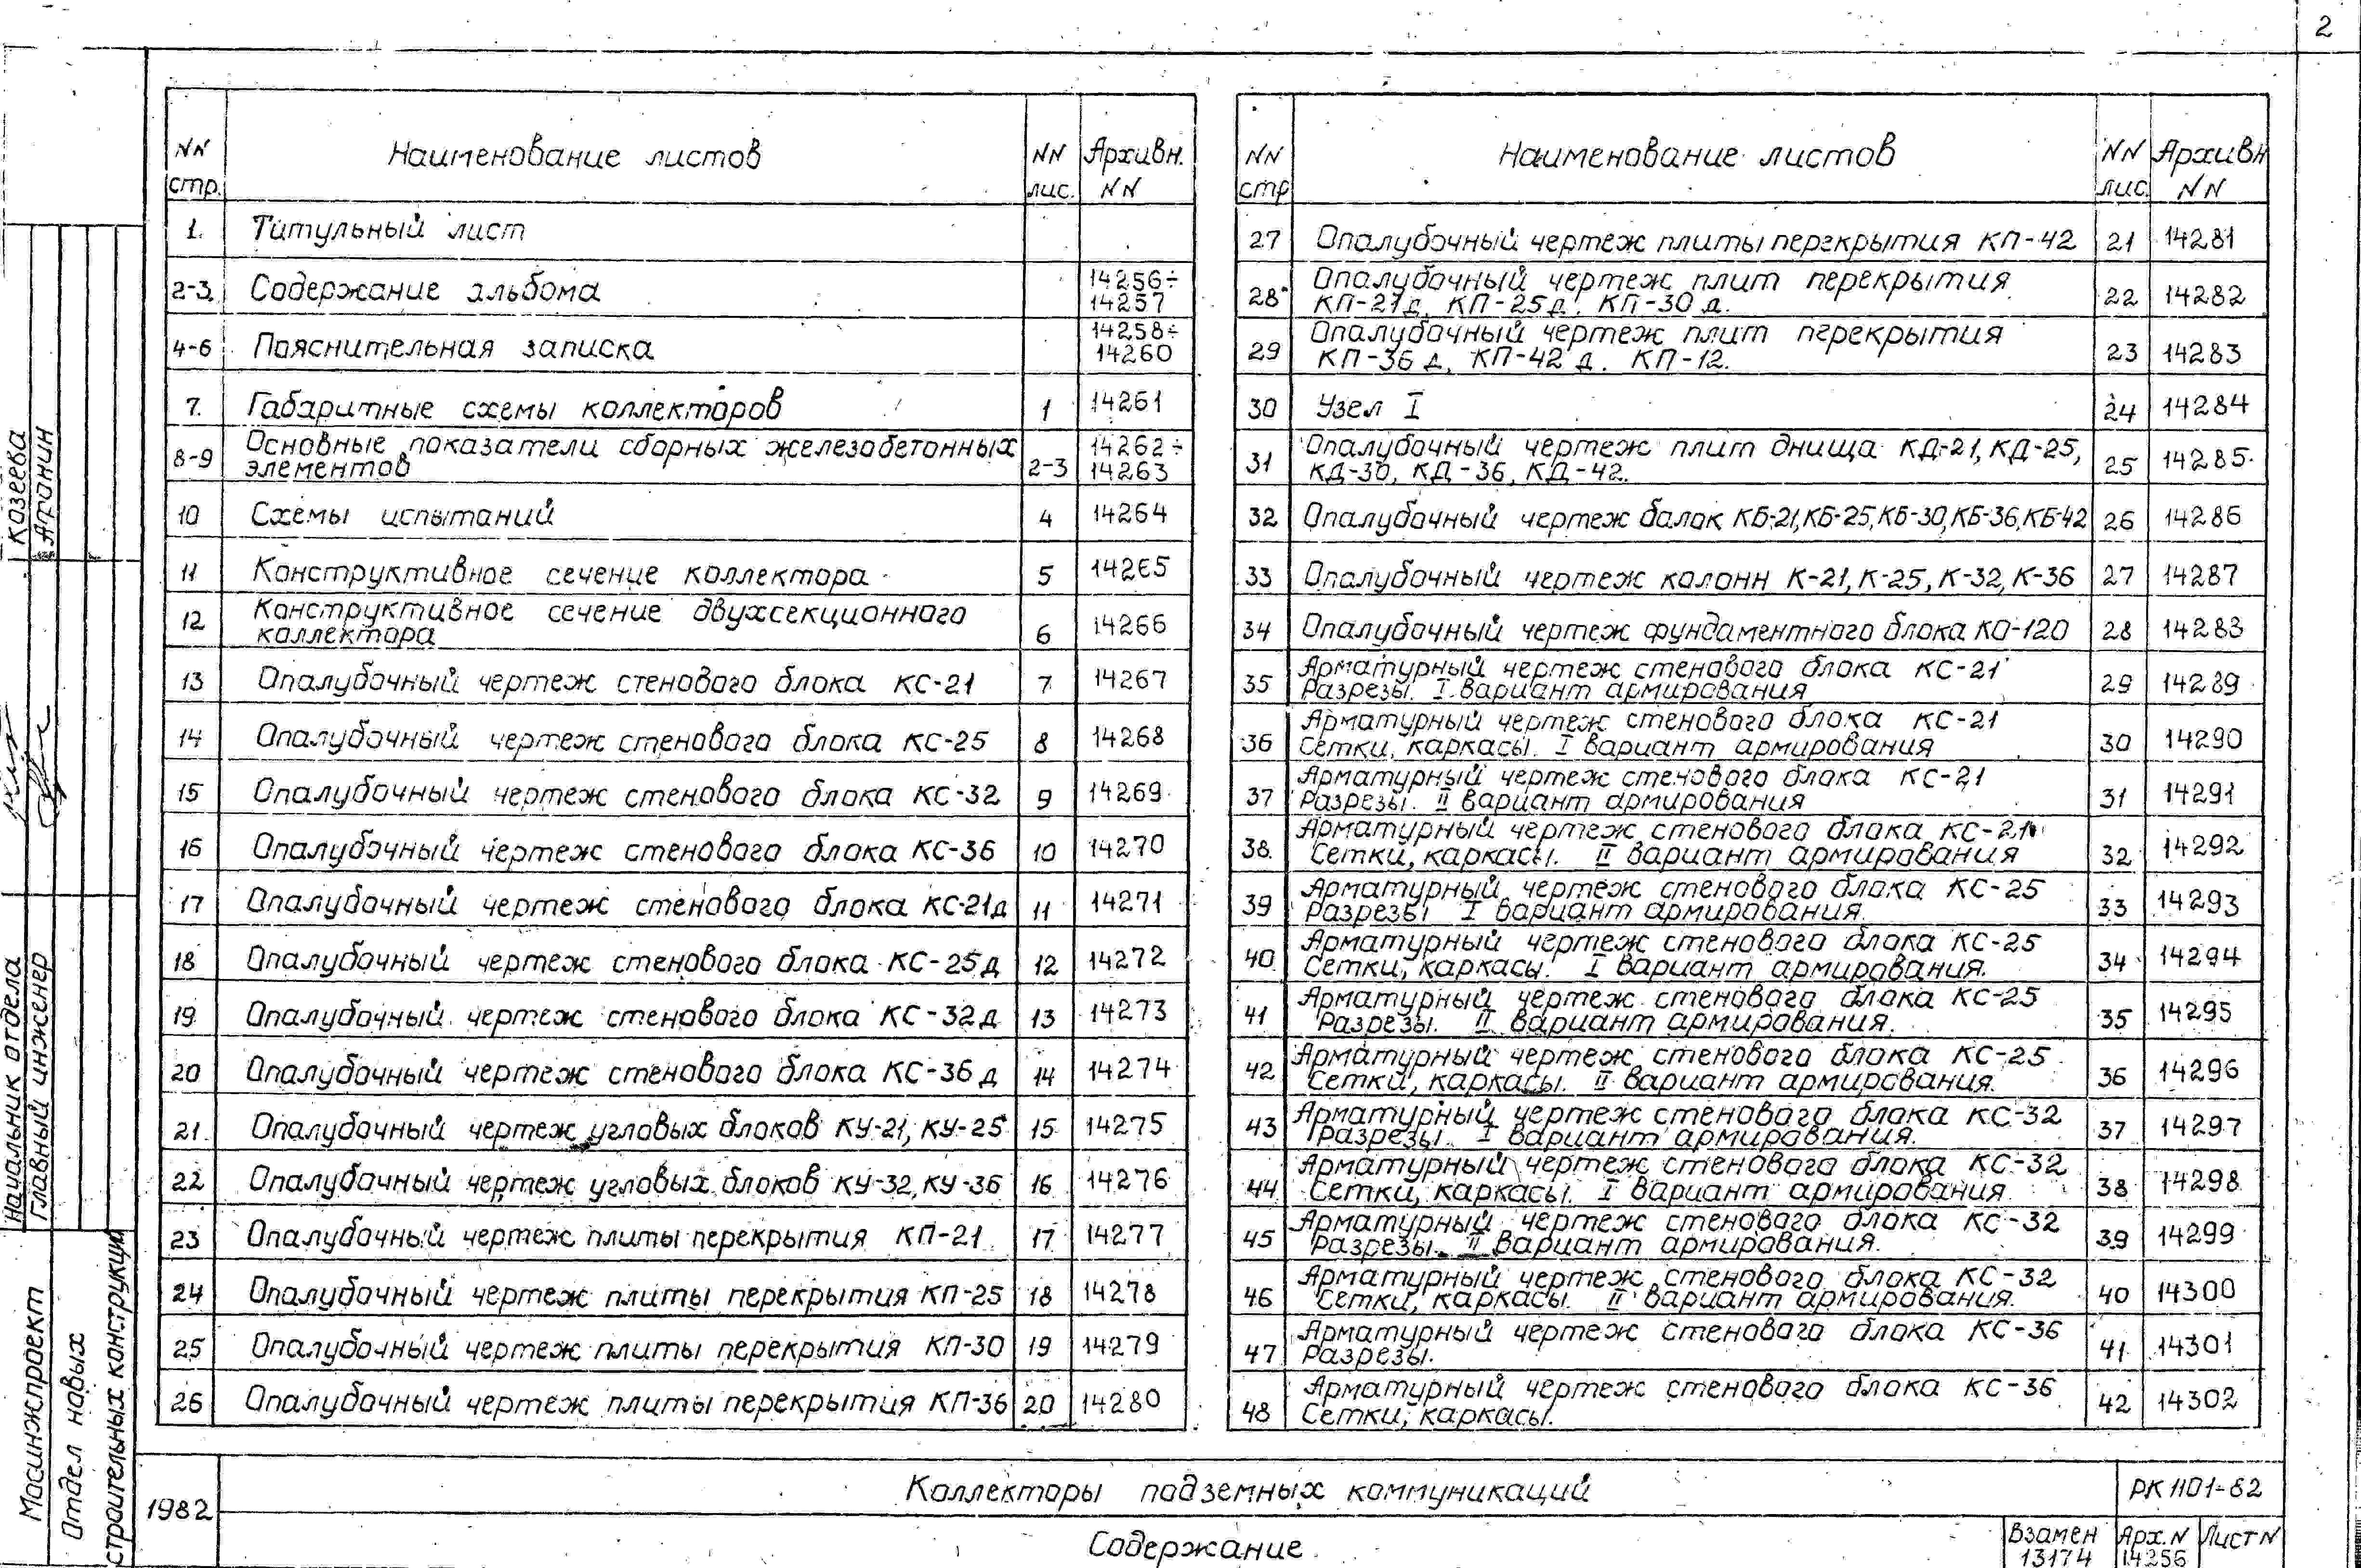 2
NN стр. Наименование листов NN лис. Архивн. NN
1. Титульный лист
2-3. Содержание альбома 14256÷ 14257
4-6 Пояснительная записка 14258÷ 14260
7. Габаритные схемы коллекторов 1 14261
8-9 Основные показатели сборных железобетонных
элементов 2-3 14262÷ 14263
10 Схемы испытаний 4 14264
11 Конструктивное сечение коллектора 5 14265
12 Конструктивное сечение двухсекционного
коллектора 6 14266
13 Опалубочный чертеж стенового блока КС-21 7 14267
14 Опалубочный чертеж стенового блока КС-25 8 14268
15 Опалубочный чертеж стенового блока КС-32 9 14269
16 Опалубочный чертеж стенового блока КС-36 10 14270
17 Опалубочный чертеж стенового блока КС-21д 11 14271
18 Опалубочный чертеж стенового блока КС-25д 12 14272
19 Опалубочный чертеж стенового блока КС-32д 13 14273
20 Опалубочный чертеж стенового блока КС-36д 14 14274
21. Опалубочный чертеж угловых блоков КУ-21, КУ-25 15 14275
22 Опалубочный чертеж угловых блоков КУ-32, КУ-36 16 14276
23 Опалубочный чертеж плиты перекрытия КП-21 17 14277
24 Опалубочный чертеж плиты перекрытия КП-25 18 14278
25 Опалубочный чертеж плиты перекрытия КП-30 19 14279
26 Опалубочный чертеж плиты перекрытия КП-36 20 14280
NN стр Наименование листов NN лис. Архивн NN
27 Опалубочный чертеж плиты перекрытия КП-42 21 14281
28 Опалубочный чертеж плит перекрытия
КП-21д, КП-25д, КП-30д. 22 14282
29 Опалубочный чертеж плит перекрытия
КП-36д, КП-42д. КП-12. 23 14283
30 Узел I 24 14284
31 Опалубочный чертеж плит днища КД-21, КД-25,
КД-30, КД-36, КД-42. 25 14285
32 Опалубочный чертеж балок КБ-21, КБ-25, КБ-30, КБ-36, КБ-42 26 14286
33 Опалубочный чертеж колонн К-21, К-25, К-32, К-36 27 14287
34 Опалубочный чертеж фундаментного блока КО-120 28 14283
35 Арматурный чертеж стенового блока КС-21
Разрезы. I вариант армирования 29 14289
36 Арматурный чертеж стенового блока КС-21
Сетки, каркасы. I вариант армирования 30 14290
37 Арматурный чертеж стенового блока КС-21
Разрезы. II вариант армирования 31 14291
38. Арматурный чертеж стенового блока КС-21
Сетки, каркасы. II вариант армирования 32 14292
39 Арматурный чертеж стенового блока КС-25
Разрезы I вариант армирования. 33 14293
40 Арматурный чертеж стенового блока КС-25
Сетки, каркасы. I вариант армирования. 34 14294
41 Арматурный чертеж стенового блока КС-25
Разрезы. II вариант армирования. 35 14295
42 Арматурный чертеж стенового блока КС-25
Сетки, каркасы. II вариант армирования. 36 14296
43 Арматурный чертеж стенового блока КС-32
Разрезы. I вариант армирования. 37 14297
44 Арматурный чертеж стенового блока КС-32
Сетки, каркасы. I вариант армирования 38 14298
45 Арматурный чертеж стенового блока КС-32
Разрезы. II вариант армирования. 39 14299
46 Арматурный чертеж стенового блока КС-32
Сетки, каркасы. II вариант армирования. 40 14300
47 Арматурный чертеж стенового блока КС-36
Разрезы. 41 14301
48 Арматурный чертеж стенового блока КС-36
Сетки, каркасы. 42 14302
Мосинжпроект
Отдел новых
строительных конструкций
Начальник отдела Козеева
Главный инженер Афонин
1982
Коллекторы подземных коммуникаций
Содержание
РК 1101-82
Взамен 13174
Арх. N 14256
Лист N